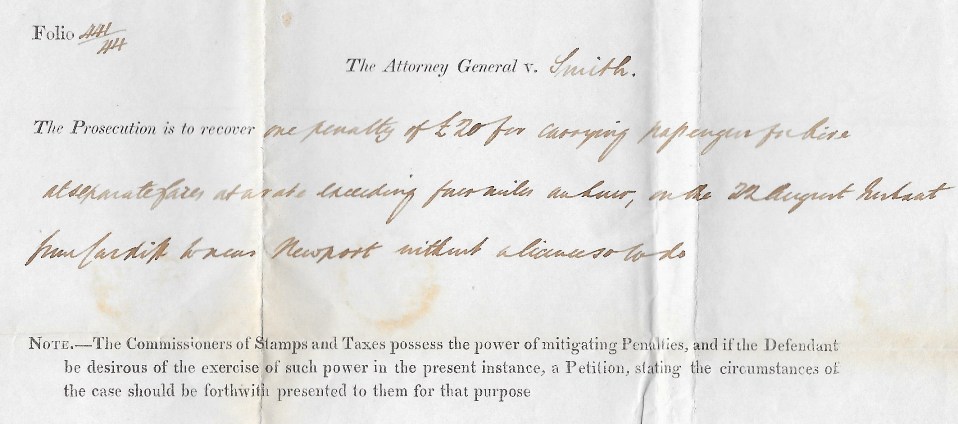 Folio 441/44
The Attorney General v. Smith.
The Prosecution is to recover one penalty of £20 for carrying passengers for hire
at separate fares at a rate exceeding four miles an hour, on the 7th August Instant
from Cardiff to near Newport without a licence so to do
NOTE.—The Commissioners of Stamps and Taxes possess the power of mitigating Penalties, and if the Defendant
be desirous of the exercise of such power in the present instance, a Petition, stating the circumstances of
the case should be forthwith presented to them for that purpose